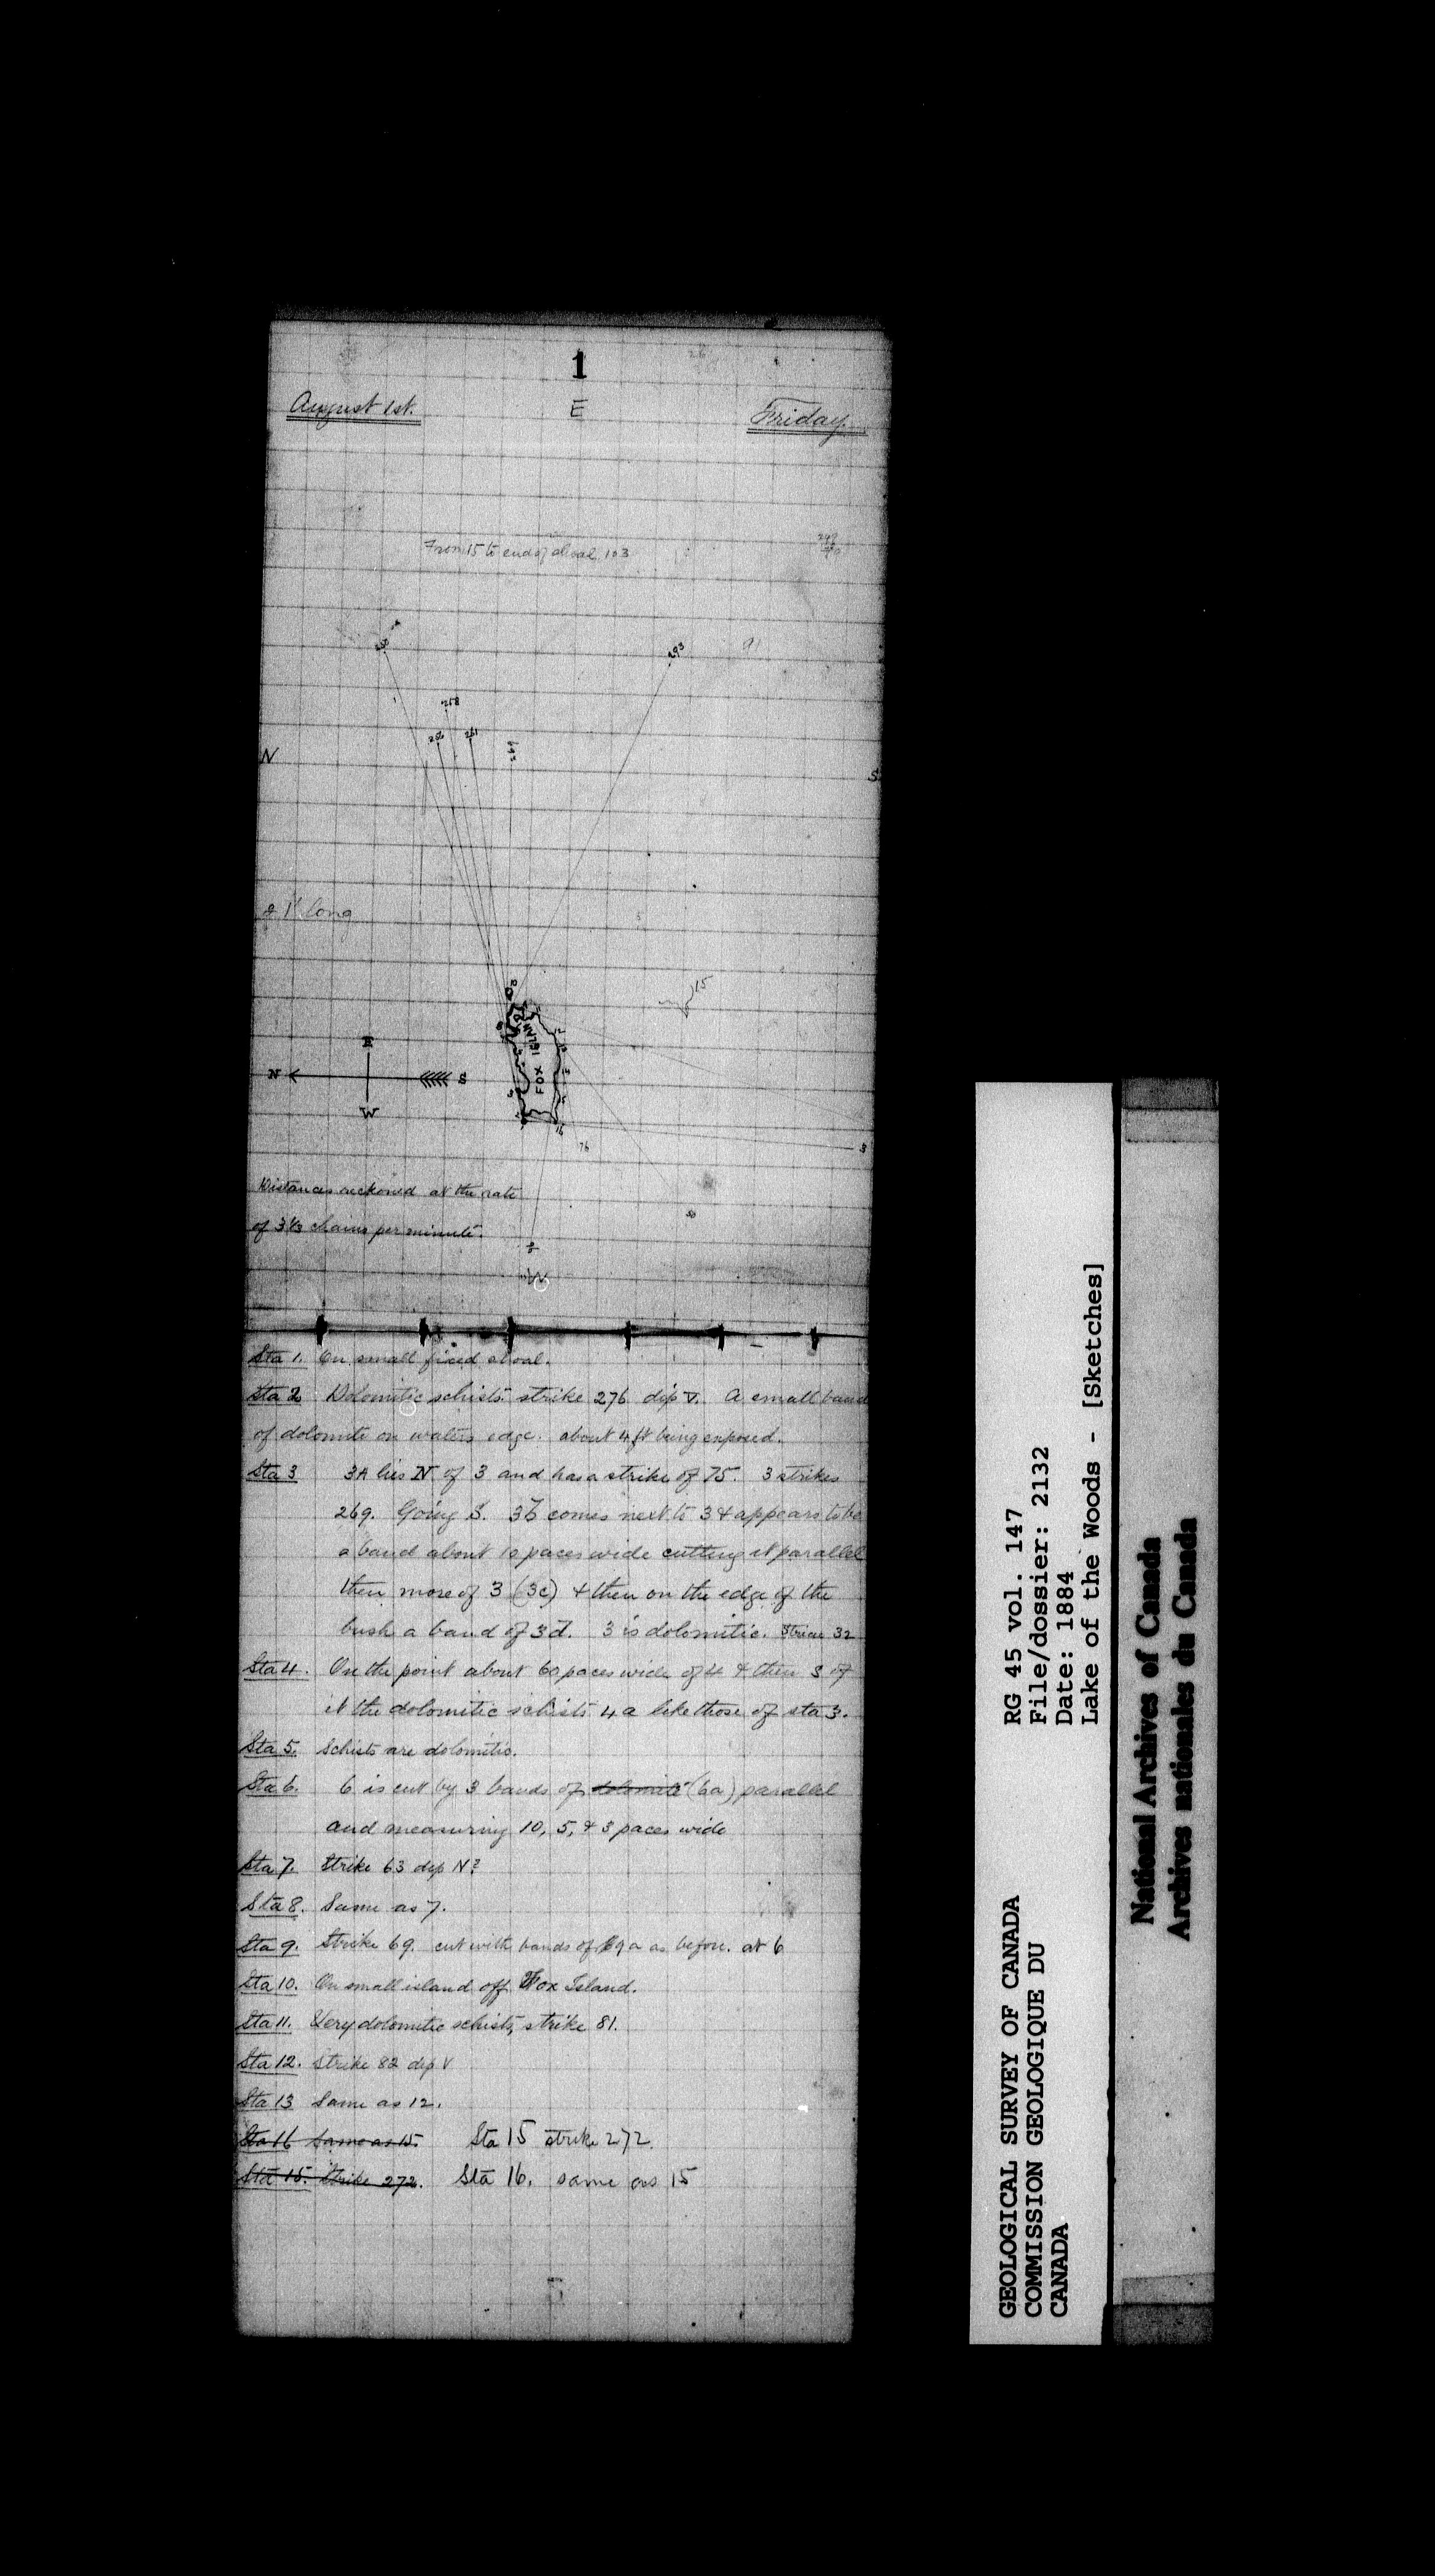 1
August 1st.
E
Friday.
From 15 to end of shoal 103
293
91
258
256
261
269
N
S
& 1' long
15
FOX ISLAND
E
N
S
W
16
76
Distances reckoned at the rate
of 3 1/3 chains per minute.
W
Sta 1. On small fixed shoal.
Sta 2 Dolomitic schists strike 276 dip V. A small band
of dolomite on waters edge. about 4 ft being exposed.
Sta 3 3A lies N of 3 and has a strike of 75. 3 strikes
269. Going S. 3b comes next to 3 & appears to be
a band about 10 paces wide cutting it parallel
then more of 3 (3c) & then on the edge of the
bush a band of 3d. 3 is dolomitic. Striae 32
Sta 4. On the point about 60 paces wide of 4 & then S of
it the dolomitic schists 4a like those of sta 3.
Sta 5. Schists are dolomitic.
Sta 6. 6 is cut by 3 bands of dolomite (6a) parallel
and measuring 10, 5, & 3 paces wide
Sta 7. Strike 63 dip N?
Sta 8. Same as 7.
Sta 9. Strike 69. cut with bands of 9a as before. at 6
Sta 10. On small island off Fox Island.
Sta 11. Very dolomitic schists, strike 81.
Sta 12. Strike 82 dip V
Sta 13 Same as 12.
Sta 16 Same as 15 Sta 15 strike 272.
Sta 15. Strike 272. Sta 16. same as 15
GEOLOGICAL SURVEY OF CANADA
COMMISSION GEOLOGIQUE DU
CANADA
RG 45 vol. 147
File/dossier: 2132
Date: 1884
Lake of the Woods - [Sketches]
National Archives of Canada
Archives nationales du Canada